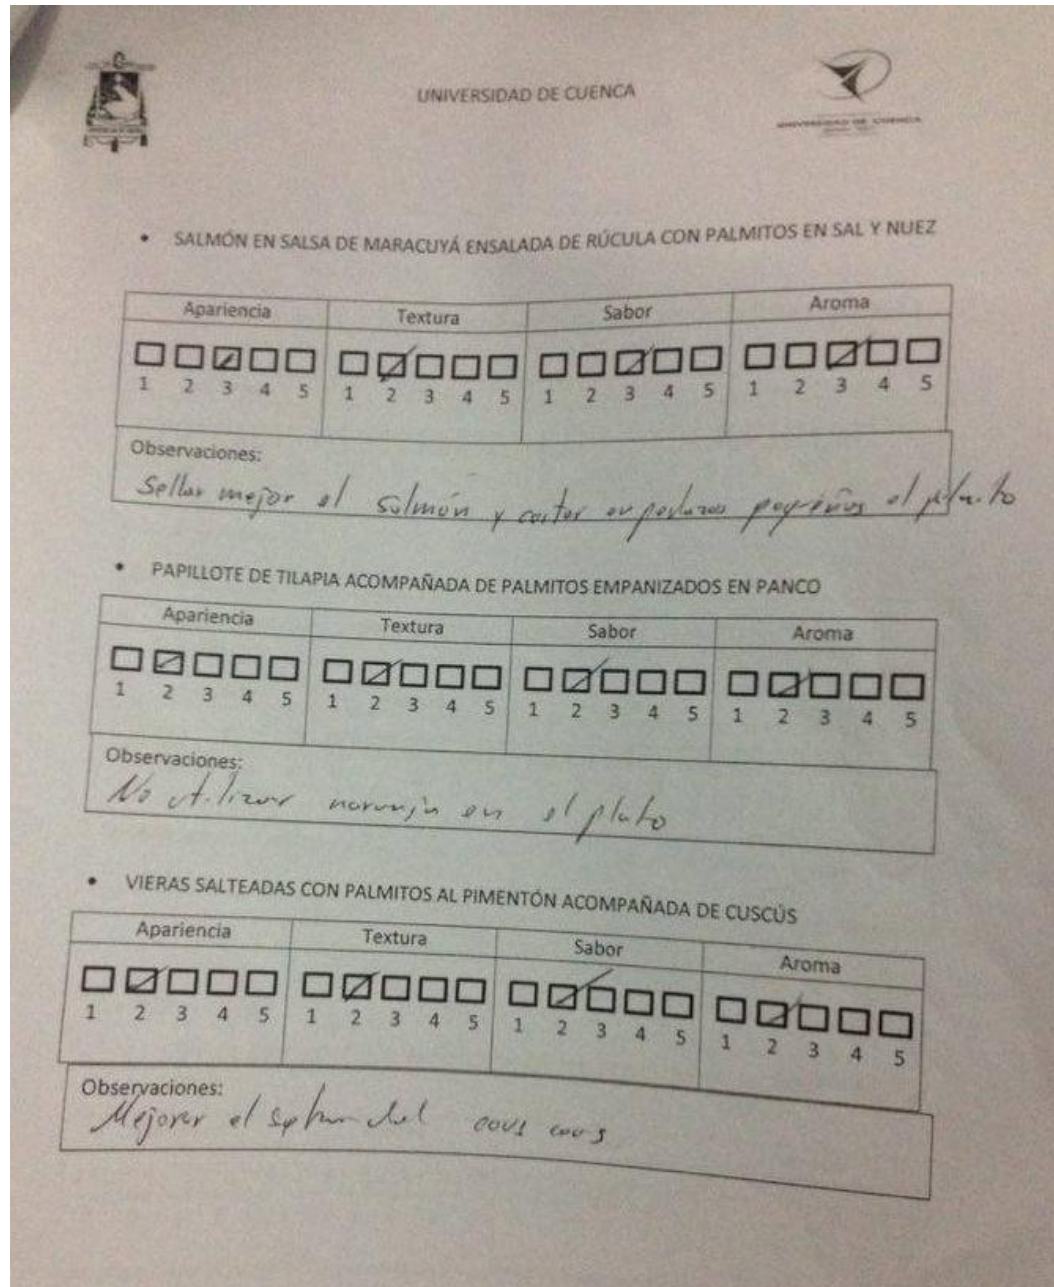 UNIVERSIDAD DE CUENCA
UNIVERSIDAD DE CUENCA
• SALMÓN EN SALSA DE MARACUYÁ ENSALADA DE RÚCULA CON PALMITOS EN SAL Y NUEZ
Apariencia Textura Sabor Aroma
1 2 3 4 5 1 2 3 4 5 1 2 3 4 5 1 2 3 4 5
Observaciones:
Sellar mejor el salmón y cortar en pedazos pequeños el
• PAPILLOTE DE TILAPIA ACOMPAÑADA DE PALMITOS EMPANIZADOS EN PANCO
Apariencia Textura Sabor Aroma
1 2 3 4 5 1 2 3 4 5 1 2 3 4 5 1 2 3 4 5
Observaciones:
No utilizar naranja en el plato
• VIERAS SALTEADAS CON PALMITOS AL PIMENTÓN ACOMPAÑADA DE CUSCÚS
Apariencia Textura Sabor Aroma
1 2 3 4 5 1 2 3 4 5 1 2 3 4 5 1 2 3 4 5
Observaciones:
Mejorar el del cous cous